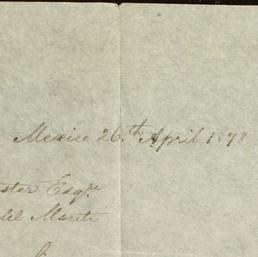 Mexico 26.th April 1878
ster Esqre
del Monte